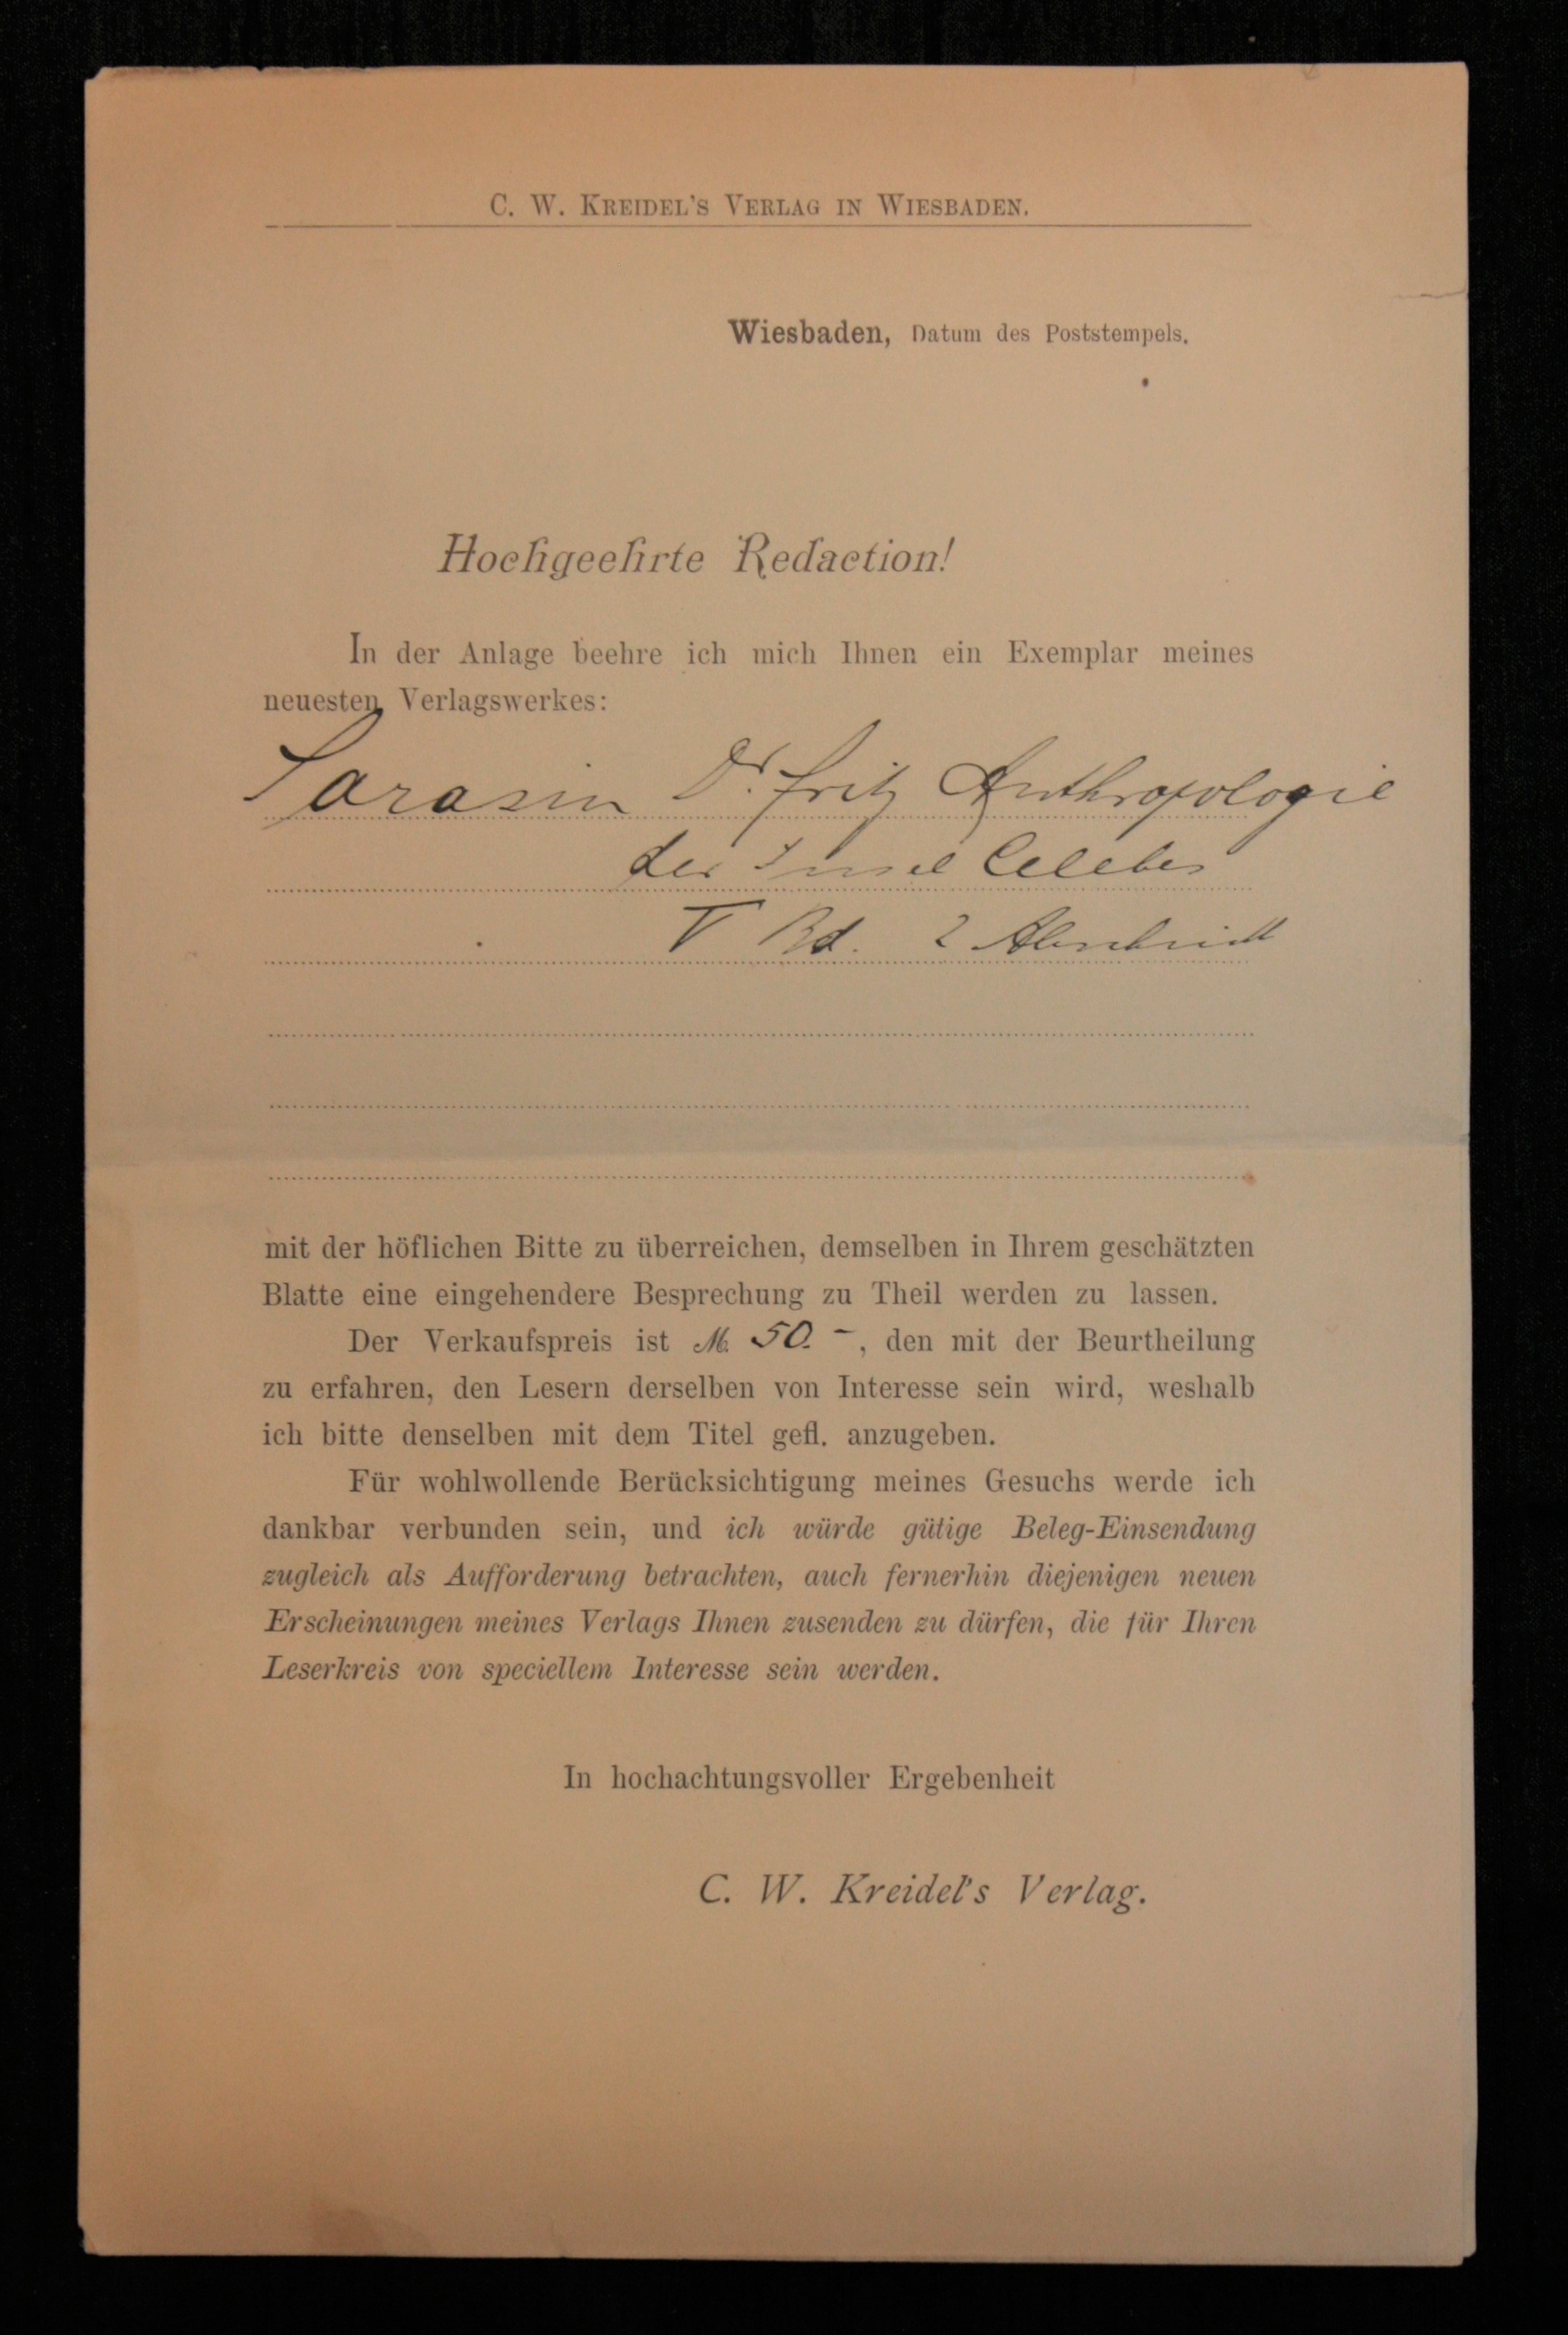 C. W. KREIDEL'S VERLAG IN WIESBADEN.
Wiesbaden, Datum des Poststempels.
Hochgeehrte Redaction!
In der Anlage beehre ich mich Ihnen ein Exemplar meines
neuesten Verlagswerkes:
Sarasin Dr. Fritz Anthropologie
der Insel Celebes
V Bd. 2 Abschnitt
mit der höflichen Bitte zu überreichen, demselben in Ihrem geschätzten
Blatte eine eingehendere Besprechung zu Theil werden zu lassen.
Der Verkaufspreis ist M. 50. –, den mit der Beurtheilung
zu erfahren, den Lesern derselben von Interesse sein wird, weshalb
ich bitte denselben mit dem Titel gefl. anzugeben.
Für wohlwollende Berücksichtigung meines Gesuchs werde ich
dankbar verbunden sein, und ich würde gütige Beleg-Einsendung
zugleich als Aufforderung betrachten, auch fernerhin diejenigen neuen
Erscheinungen meines Verlags Ihnen zusenden zu dürfen, die für Ihren
Leserkreis von speciellem Interesse sein werden.
In hochachtungsvoller Ergebenheit
C. W. Kreidel's Verlag.